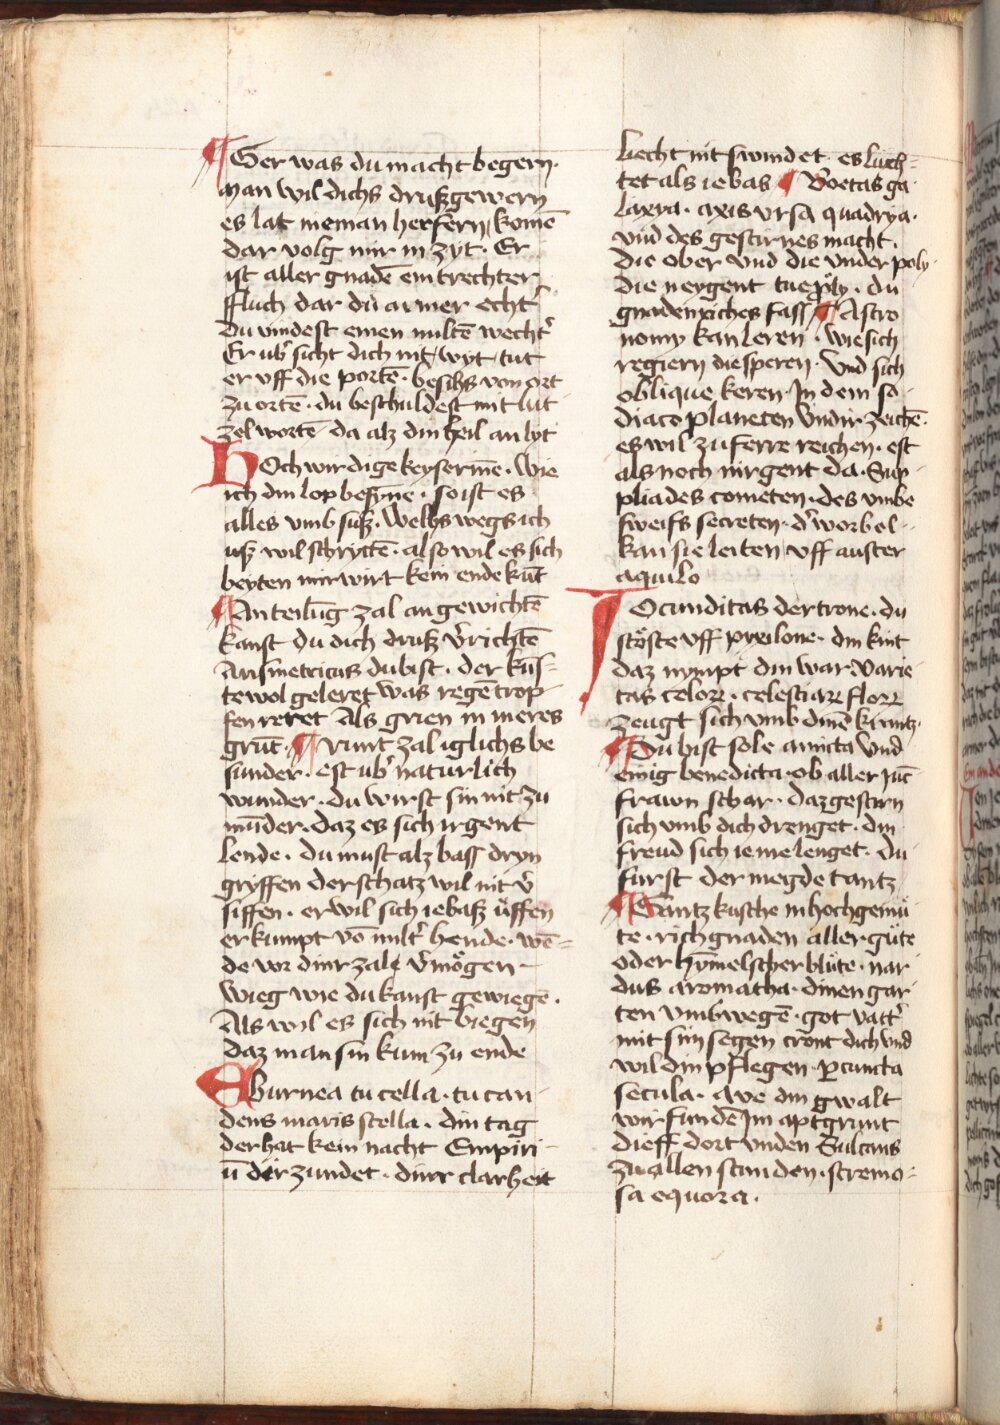 ¶ Ger was du macht begern·
man wil dichs drusz gewern
es lat nieman herfern komē
dar volg mir in zyt· Er
ist aller gnadē ein trechter
ffluch dar dů armer echt᷑
Du vindest einen miltē wecht᷑
Er ub᷑ sicht dich nit wyt tůt
er uff die portē· besihs von ort
zu ortē· du beschuldest mit lut-
zel wortē da alz din heil an lyt
HOch wirdige keyserinē· Wie
ich din lop besȳne· so ist es
alles umb susz· Welhs wegs ich
usz wil schryttē· also wil es sich
beyten mir wirt kein ende kūt
¶ An teilūg zal an gewichtē
kanst du dich drusz v᷑richtē
Arismetricus du bist· der kūs-
te wol geleret was regē trop-
fen reret Als grien in meres
grūt· ¶ Grunt zal iglichs be
sunder· est ub᷑ naturlich
wunder· du wirst sin nit zu
mūder· daz es sich irgent
lende· du must alz bass dryn
gryffen der schatz wil nit v᷑
siffen· er wil sich ie basz uͤffen
er kumpt vō milt᷑ hende· wē-
de vor dinr zale v᷑moͤgen·
wieg wie du kanst gewiegē·
Als wil es sich nit biegen
daz man sin kum zu ende
Eburnea tu cella· tu can-
dens maris stella· din tag
der hat kein nacht Empiri-
ū dir zundet· dinr clarheit
liecht nit swindet es luch-
tet als ie bas ¶ v᷑oetas ga-
laxya· axis ursa quadrya·
vnd des gestirnes macht·
Die ober vnd die vnder poly·
die neygent tue ply· du
gnadenriches fass ¶ Astro
nomy kan leren· wie sich
regiern die speren· Vnd sich
oblique keren· In dem so-
diaco planeten vndir zeichē·
es wil zu ferre reichen· est
als noch nirgent da· Sur
pliades cometen· des vmbe
sweifs secreten· d᷑ worbel-
kan sie leiten uff auster
aquilo
IOcunditas der trone· du
stoͤste uff pyxilone· din kint
daz nympt din war· Varie
tas celoꝝ· celestiaꝝ floꝝ
zeugt sich vmb dinē krantz·
¶ Du bist sole amicta vnd
einig benedicta· ob aller juc
frawn schar· daz gestirn
sich vmb dich drenget· din
freud sich ie me lenget· du
furst der megde tantz
¶ Gantz kusche in hochgemuͤ-
te· rich gnaden aller guͤte
oder hȳmelscher bluͤte· nar-
dus aromatha· dinen gar-
ten vmbwegē· got vatt᷑
mit sim segen cront dich vnd
wil din pflegen· ꝑ cuncta
secula· ave din gwalt
wir fundē Im aptgrunt
dieff dort vnden Sulcans
zu allen stunden· stremo-
sa equora·